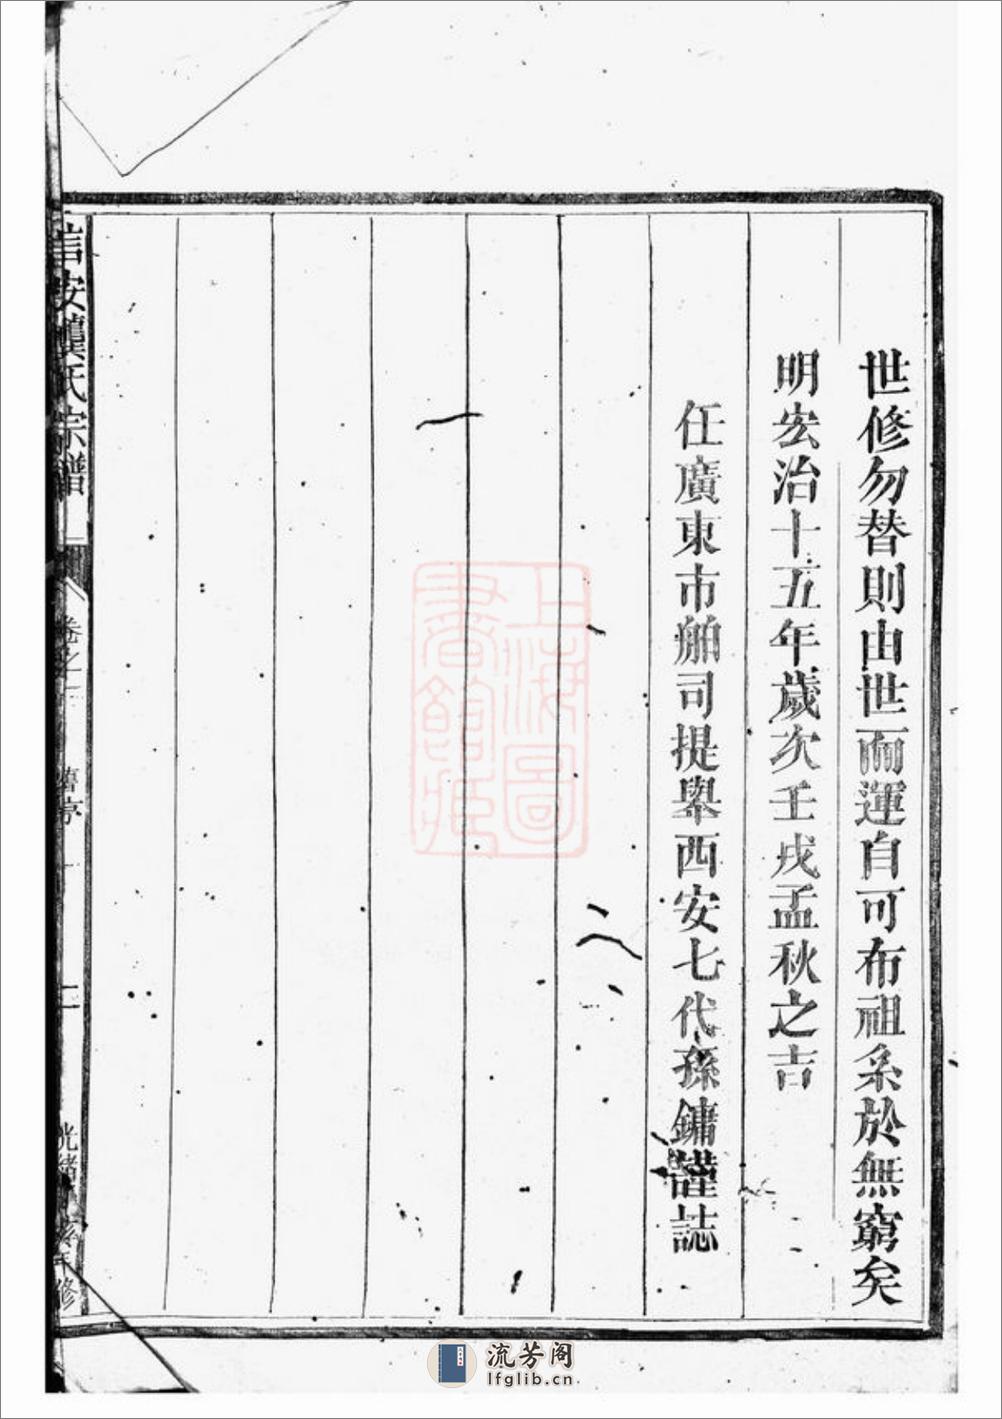 世修勿替則由世而運自可布祖系於無窮矣
明宏治十五年歲次壬戌孟秋之吉
任廣東市舶司提舉西安七代孫鏞謹誌
信安龔氏宗譜
卷之
舊序
二
光緒
修
上海圖
書館藏
流芳阁
lfglib.cn